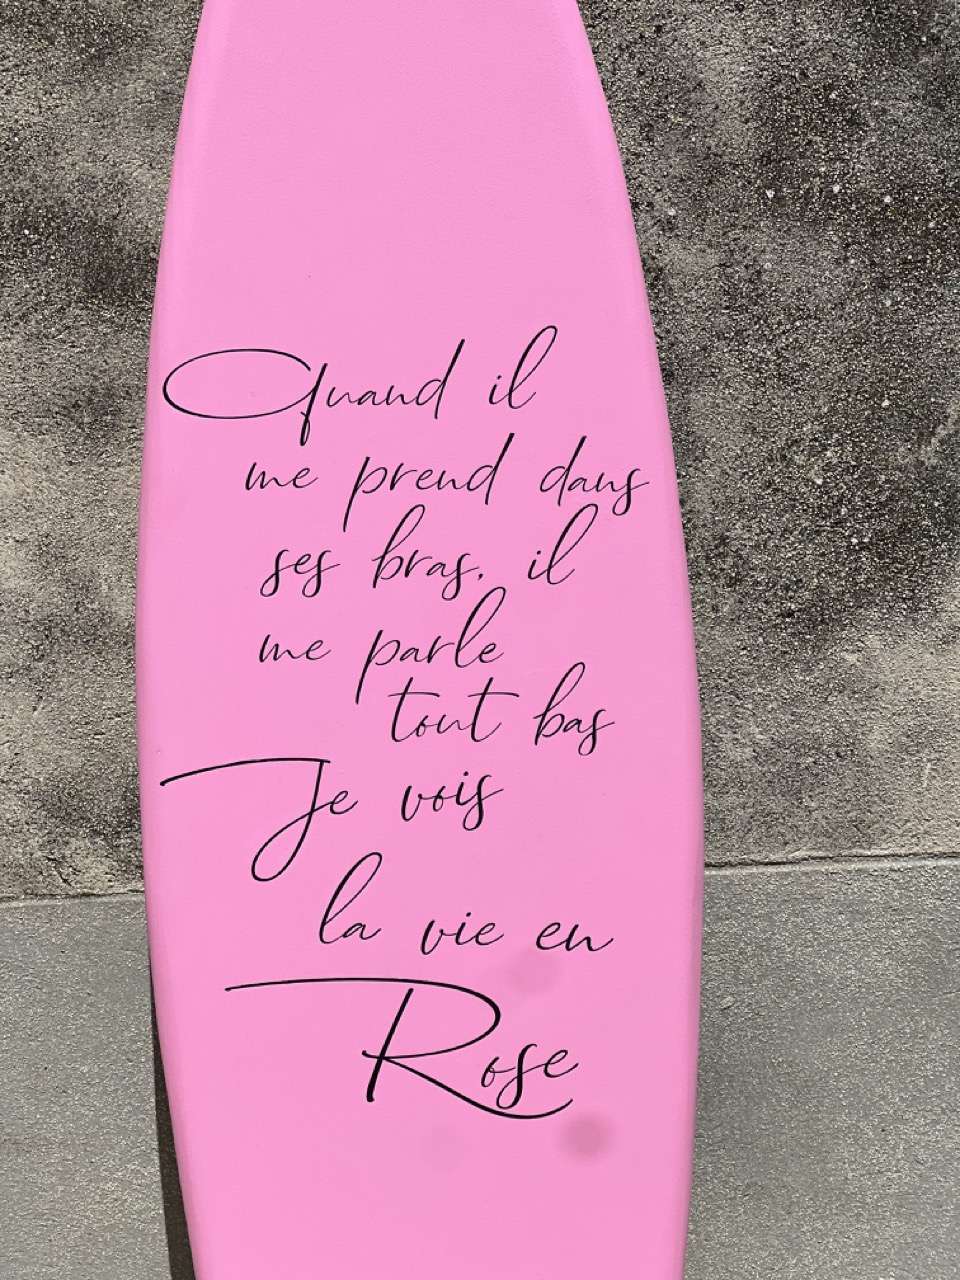 Quand il
me prend dans
ses bras, il
me parle
tout bas
Je vois
la vie en
Rose